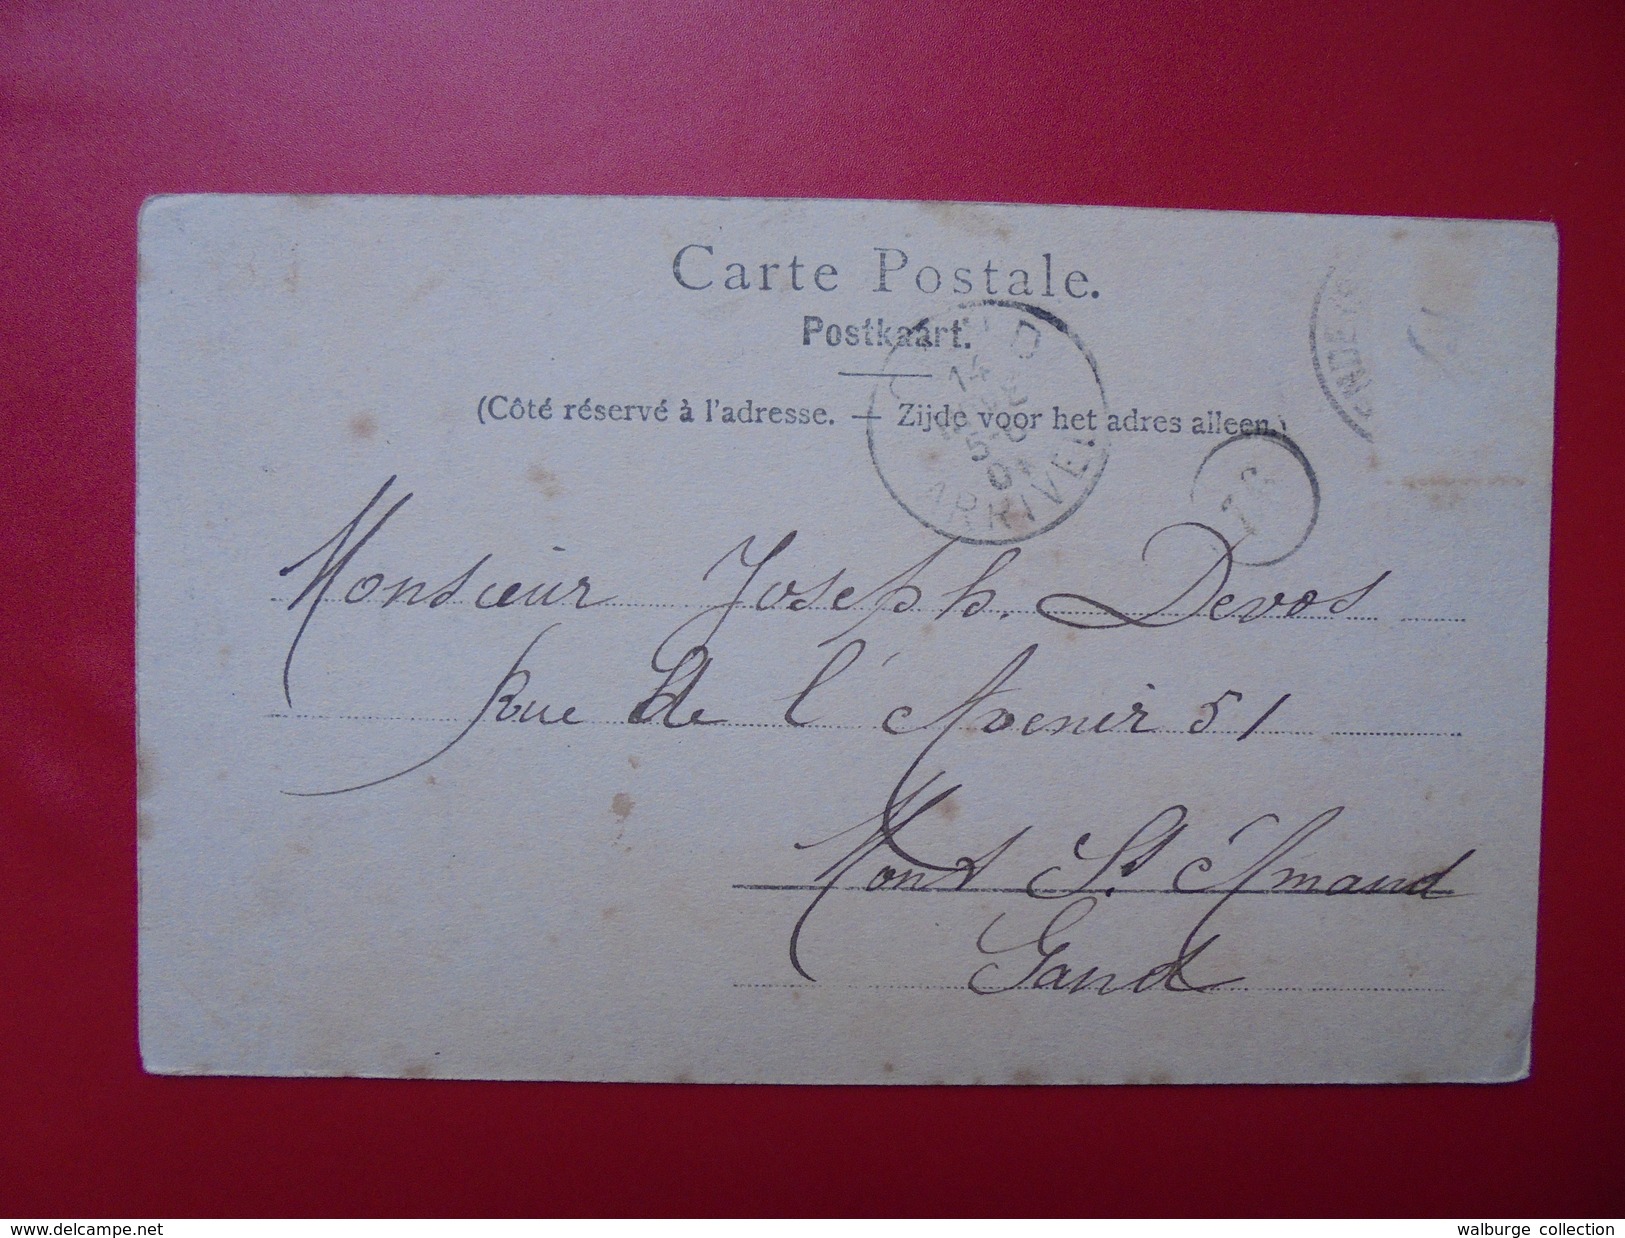 Carte Postale.
Postkaart.
(Côté réservé à l'adresse. — Zijde voor het adres alleen.)
14
ARRIVÉE
Monsieur Joseph. Devos
Rue de l'Avenir 51
Mont St. Amand
Gand
www.delcampe.net
walburge collection